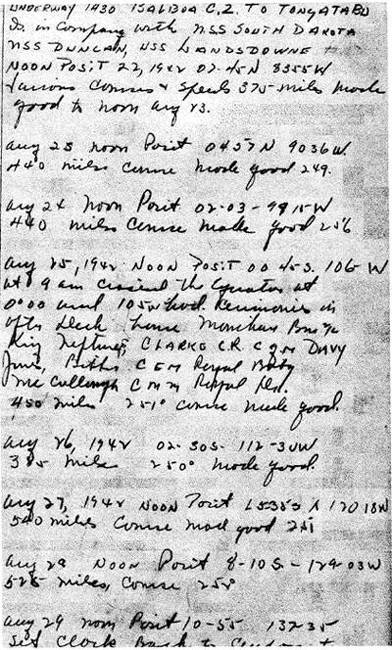 UNDERWAY 1430 BALBOA C.Z. TO TONGATABU
Is. in Company with USS SOUTH DAKOTA
USS DUNCAN, USS LANSDOWNE
NOON POSIT 22, 1942 02-45N 8355W
Various Courses & Speeds 375 miles made
good to noon Aug 23.
Aug 23 noon Posit 0457N 9036W.
440 miles Course made good 249.
Aug 24 Noon Posit 02-03-9915W
440 miles Course made good 256
Aug 25, 1942 NOON POSIT 00 45S. 106 W
at 9 am crossed the Equator at
0°00 and 105W
after Deck
King Neptune, CLARKE C.R. CGM DAVY
Jones, CEM Royal Baby
McCullough CMM Royal
450 miles 251° course made good.
Aug 26, 1942 02-30S. 112-30W
385 miles 250° made good.
Aug 27, 1942 NOON Posit 120 18W
540 miles Course made good
Aug 28 NOON Posit 8-10S.-129-03W
525 miles, Course 258
Aug 29 noon Posit 10-55 137-35
Set Clock Back to